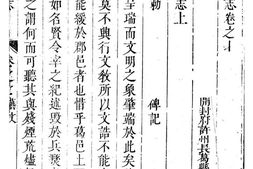 志卷之十
開封府許州長葛縣
志上
勅 碑記
呈瑞而文明之象肇端於此矣
莫不興行文敎所以文誥不能
能緩於郡邑者也惜乎葛邑上
如名賢令宰之紀述毀於兵
之謂何而可聽其與殘煙荒